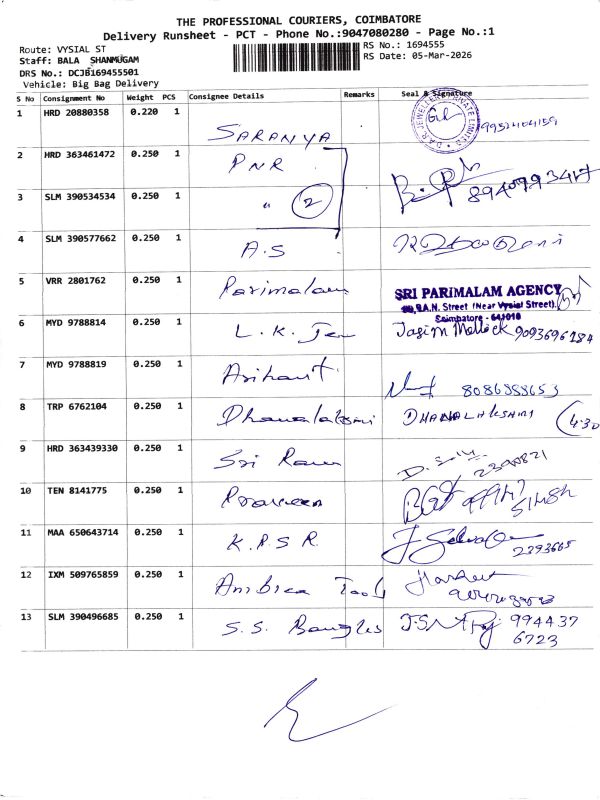 THE PROFESSIONAL COURIERS, COIMBATORE
Delivery Runsheet - PCT - Phone No.:9047080280 - Page No.:1
Route: VYSIAL ST
RS No.: 1694555
Staff: BALA SHANMUGAM
RS Date: 05-Mar-2026
DRS No.: DCJB169455501
Vehicle: Big Bag Delivery
S No Consignment No Weight PCS Consignee Details Remarks Seal & Signature
1 HRD 20880358 0.220 1 SARANYA
2 HRD 363461472 0.250 1 PNR
3 SLM 390534534 0.250 1 " 2 8940993417
4 SLM 390577662 0.250 1 A.S
5 VRR 2801762 0.250 1 Parimalam SRI PARIMALAM AGENCY
B.A.N. Street (Near Vysial Street),
Coimbatore - 641018
6 MYD 9788814 0.250 1 L.K. Jasim Mallick 9093696184
7 MYD 9788819 0.250 1 Arihant 8086388653
8 TRP 6762104 0.250 1 Dhanalakshmi DHANALAKSHMI 4:30
9 HRD 363439330 0.250 1 Sri Ram 2390821
10 TEN 8141775 0.250 1 Praveen
11 MAA 650643714 0.250 1 K.P.S.R. 2393665
12 IXM 509765859 0.250 1 Ambica Tools
13 SLM 390496685 0.250 1 S.S. Bangles 994437
6723